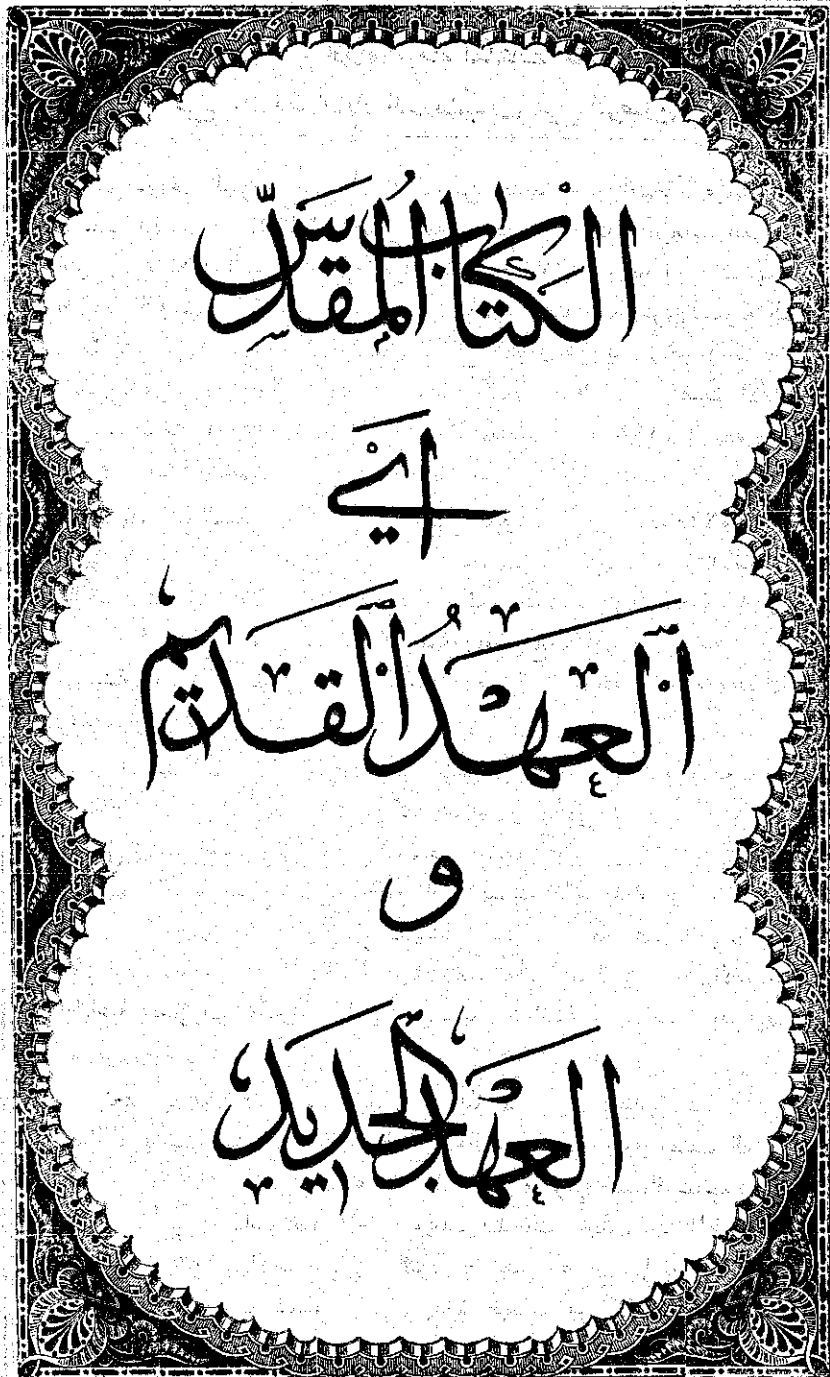 الكتاب المقدس
اي
العهد القديم
و
العهد الجديد